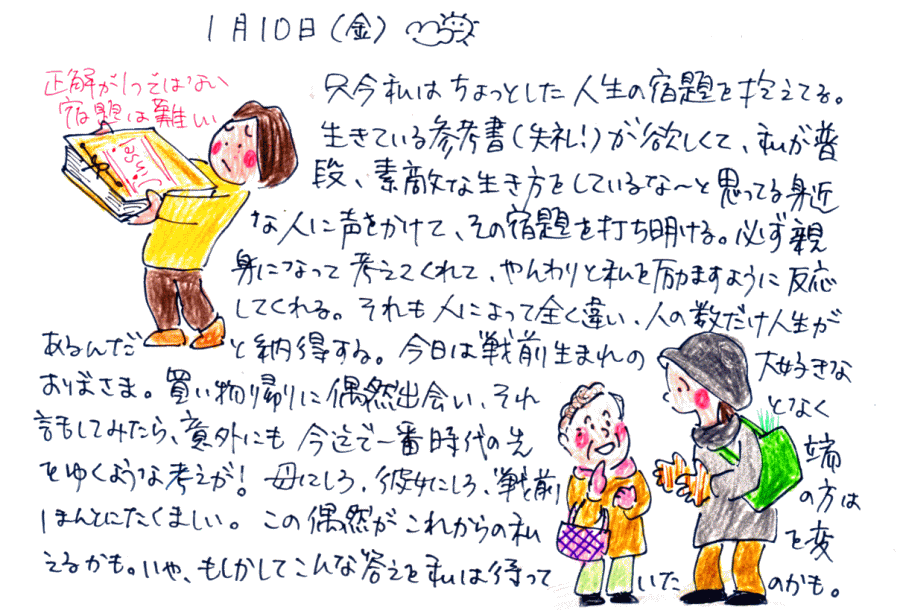 1月10日(金)
正解が1つではない
宿題は難しい
只今私はちょっとした人生の宿題を抱えてる。
生きている参考書(失礼!)が欲しくて、私が普
段、素敵な生き方をしているな〜と思ってる身近
な人に声をかけて、その宿題を打ち明ける。必ず親
身になって考えてくれて、やんわりと私を励ますように反応
してくれる。それも人によって全く違い、人の数だけ人生が
あるんだと納得する。今日は戦前生まれの大好きな
おばさま。買い物帰りに偶然出会い、それとなく
話してみたら、意外にも今迄で一番時代の先端
をゆくような考えが!母にしろ、彼女にしろ、戦前の方は
ほんとにたくましい。この偶然がこれからの私を変
えるかも。いや、もしかしてこんな答えを私は待っていたのかも。